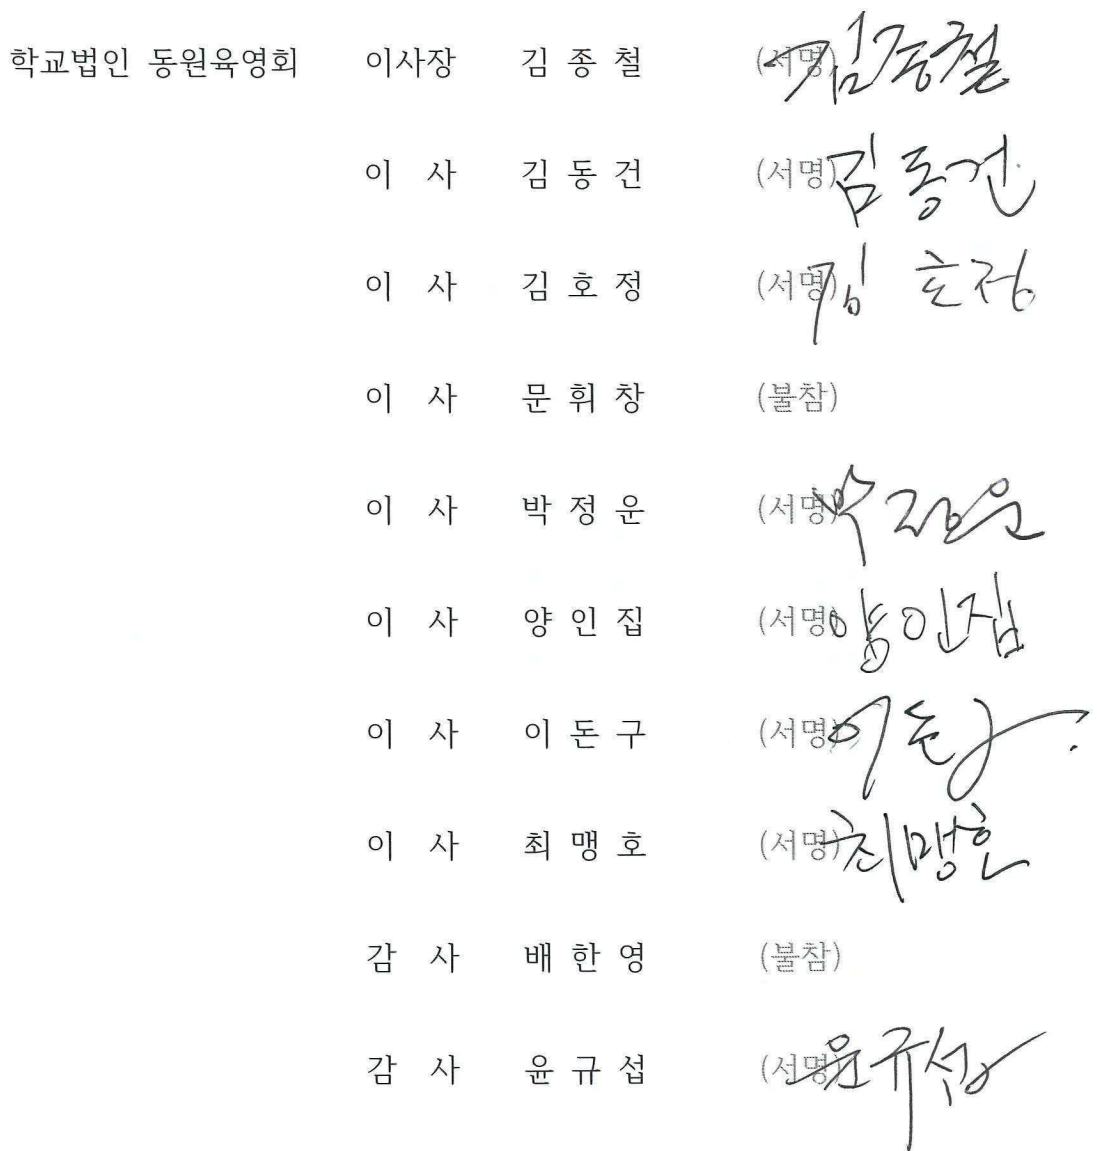 학교법인 동원육영회 이사장 김 종 철 (서명) 김종철
이 사 김 동 건 (서명) 김동건
이 사 김 호 정 (서명) 김 호정
이 사 문 휘 창 (불참)
이 사 박 정 운 (서명) 박정운
이 사 양 인 집 (서명) 양인집
이 사 이 돈 구 (서명) 이돈구
이 사 최 맹 호 (서명) 최맹호
감 사 배 한 영 (불참)
감 사 윤 규 섭 (서명) 윤규섭